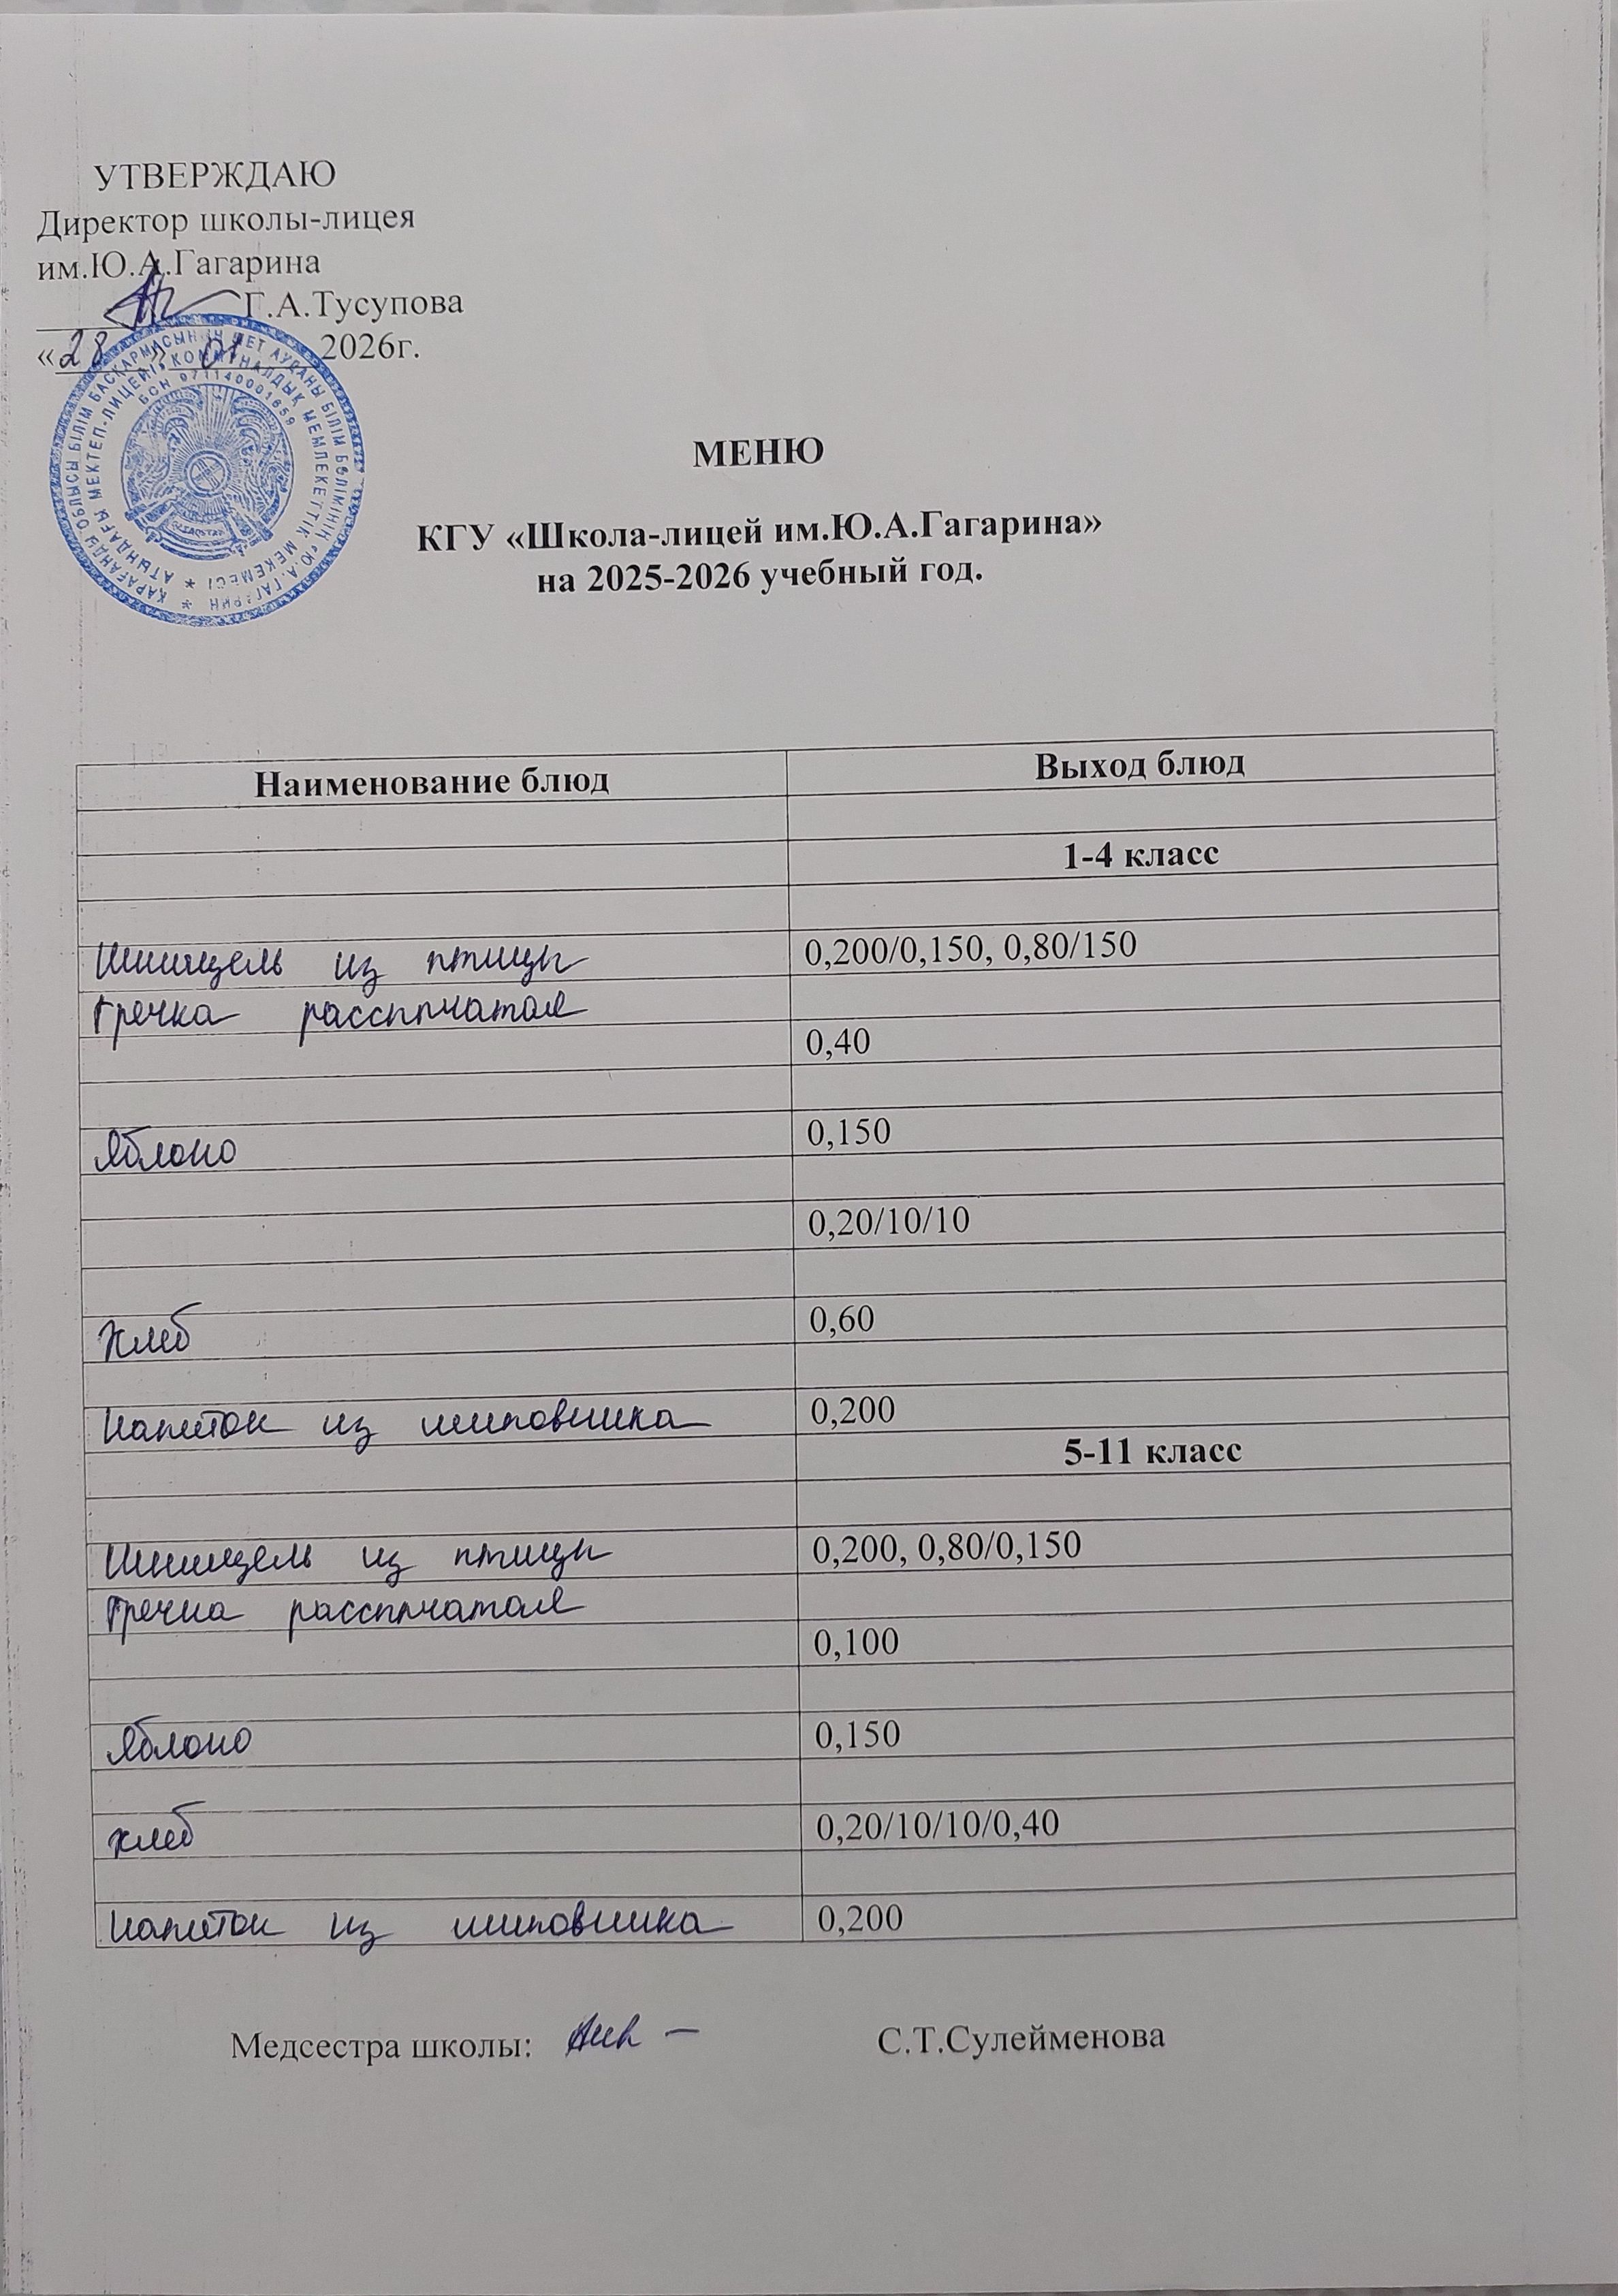 УТВЕРЖДАЮ
Директор школы-лицея
им.Ю.А.Гагарина
Г.А.Тусупова
«28» 01 2026г.
ҚАРАҒАНДЫ ОБЛЫСЫ БІЛІМ БАСҚАРМАСЫНЫҢ ШЕТ АУДАНЫ БІЛІМ БӨЛІМІНІҢ «Ю.А. ГАГАРИН
АТЫНДАҒЫ МЕКТЕП-ЛИЦЕЙІ» КОММУНАЛДЫҚ МЕМЛЕКЕТТІК МЕКЕМЕСІ
БСН 971140001659
МЕНЮ
КГУ «Школа-лицей им.Ю.А.Гагарина»
на 2025-2026 учебный год.
Наименование блюд Выход блюд
1-4 класс
Шницель из птицы 0,200/0,150, 0,80/150
Гречка рассыпчатая
0,40
Яблоко 0,150
0,20/10/10
Хлеб 0,60
Напиток из шиповника 0,200
5-11 класс
Шницель из птицы 0,200, 0,80/0,150
Гречка рассыпчатая
0,100
Яблоко 0,150
хлеб 0,20/10/10/0,40
Напиток из шиповника 0,200
Медсестра школы: С.Т.Сулейменова